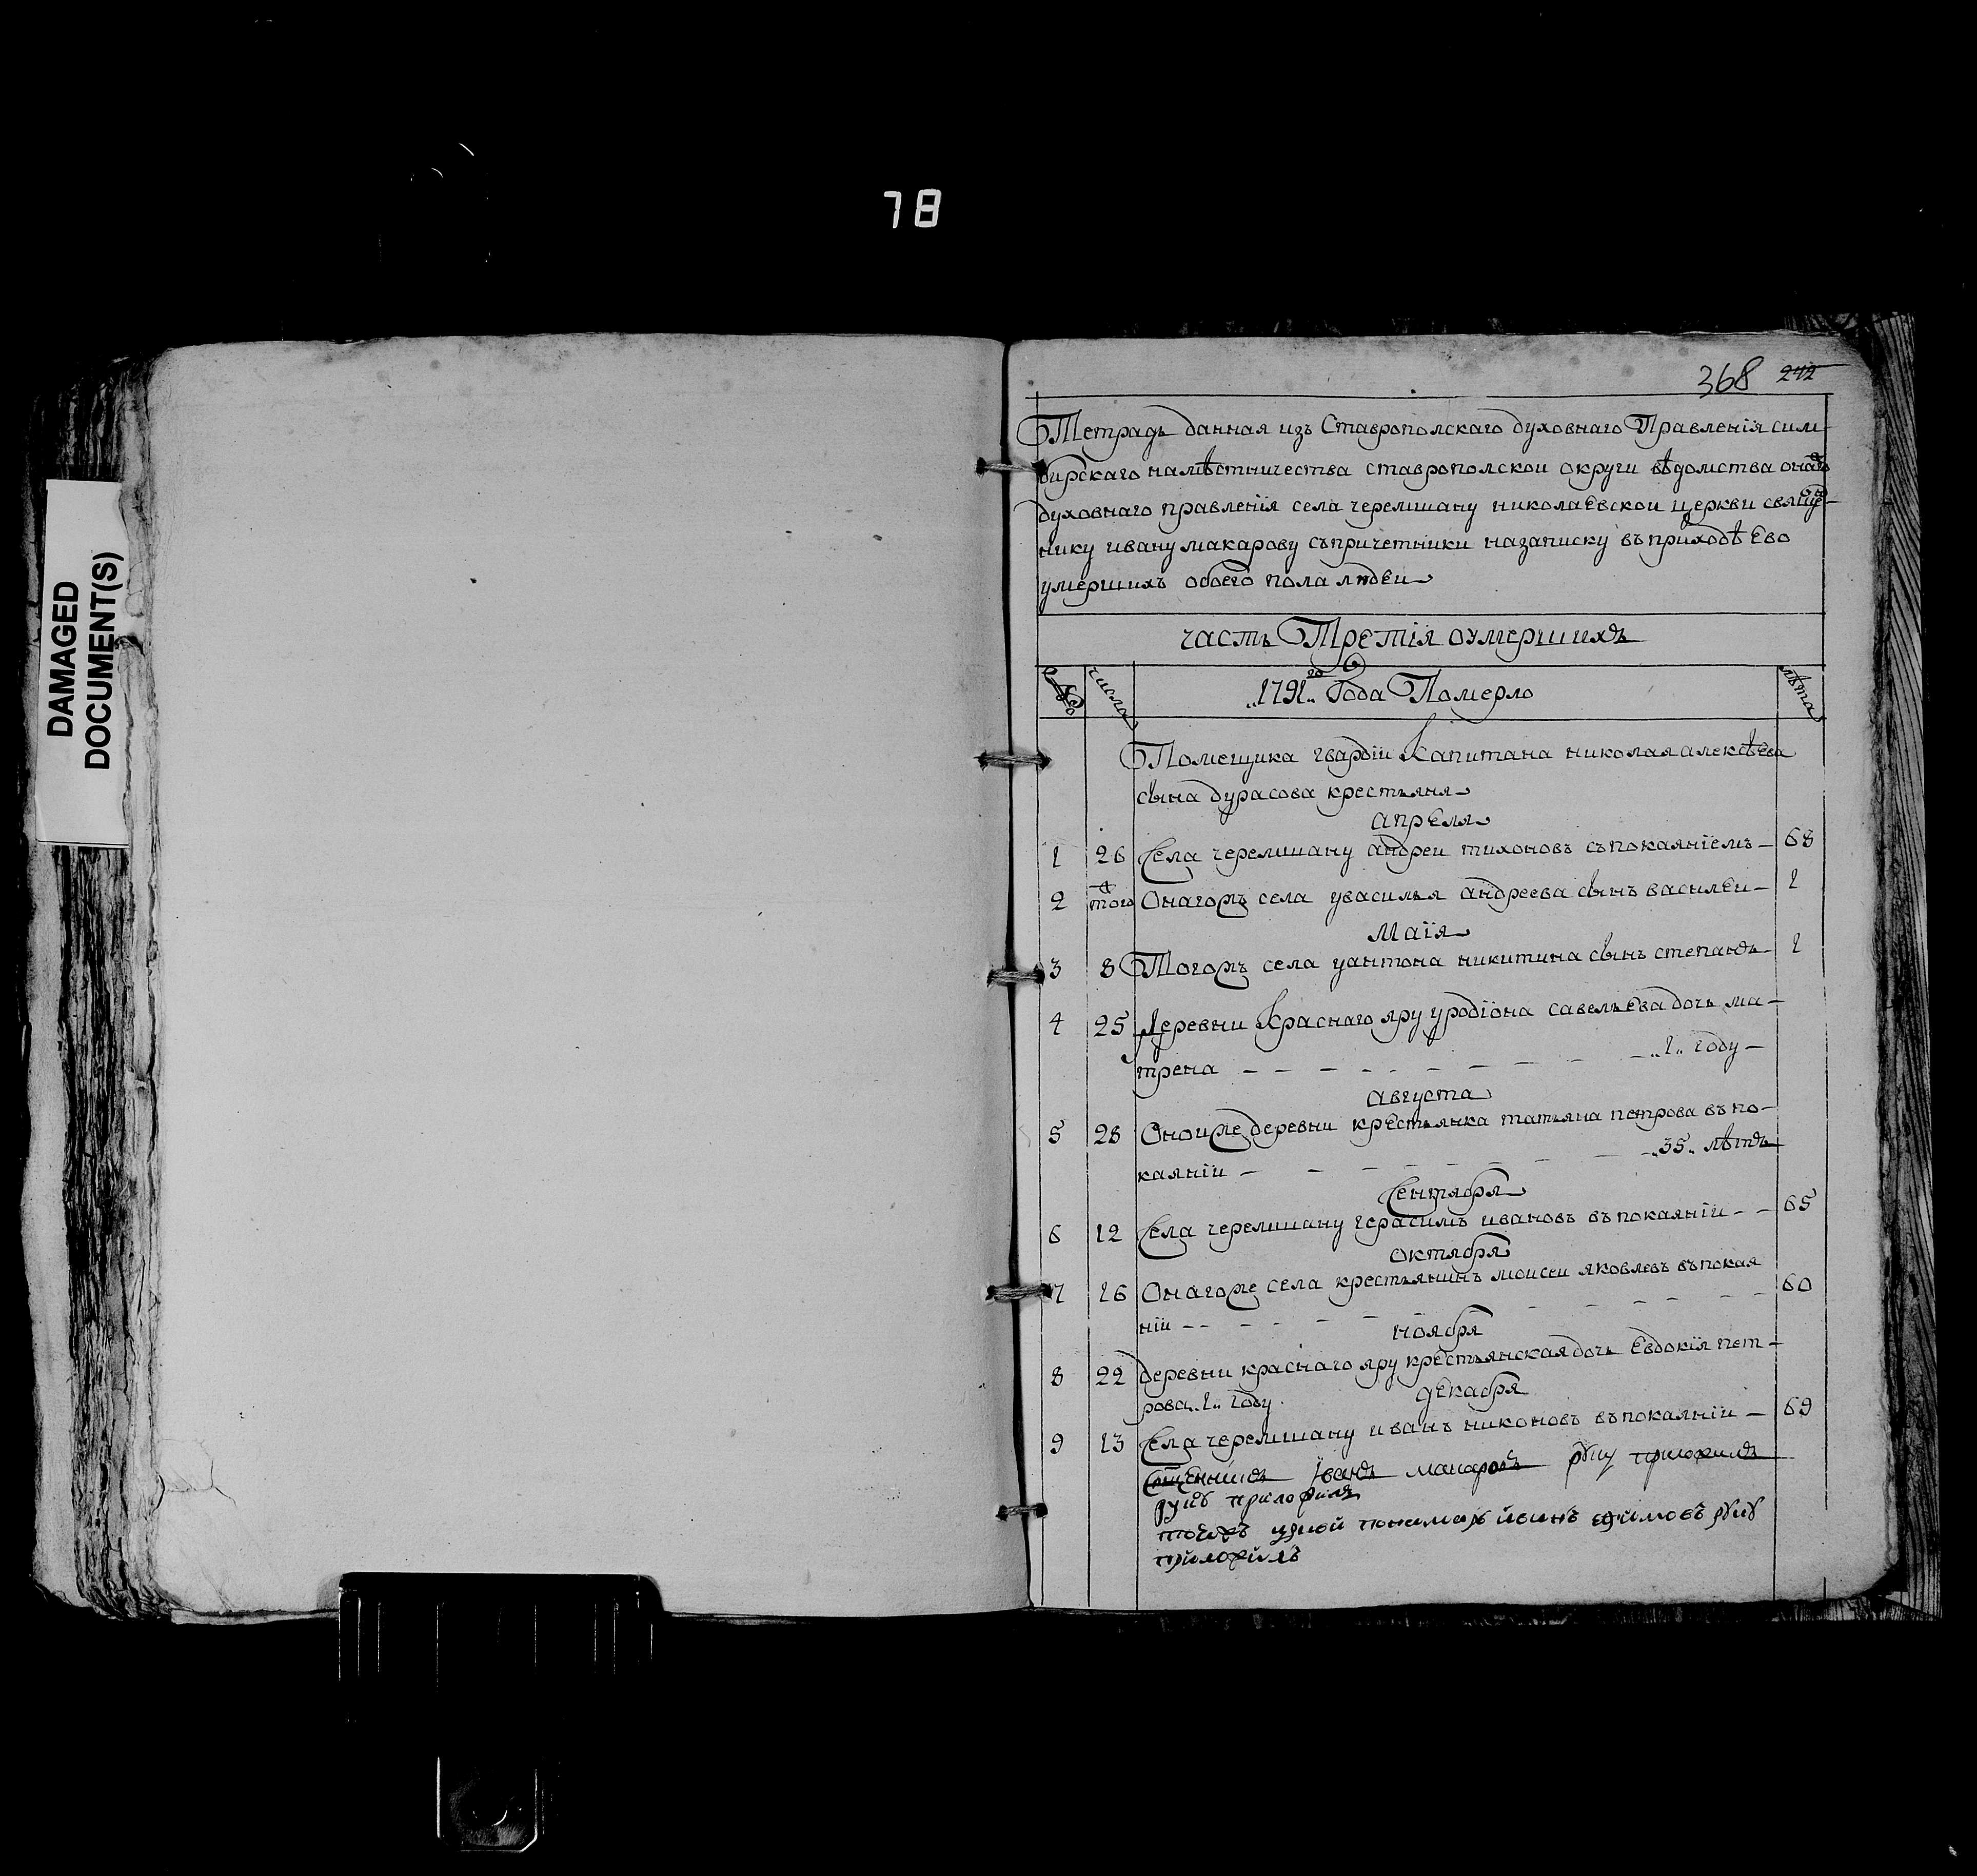 78
DAMAGED
DOCUMENT(S)
368 242
Тетрадь данная изъ Ставрополскаго духовнаго Правленія сим-
бирскаго намѣстничества ставрополскои округи вѣдомства онаго
духовнаго правленія села черемшану николаевскои церкви свяще-
нику ивану макарову съпричетники назаписку въприходѣ Ево
умершихъ обоего пола людеи
часть Третія оумершихъ
№ числа 1791го года Померло лѣта
Помещика гвардіи Капитана николая алексѣева
сына дурасова крестьяня
апреля
1 26 Села черемшану андреи тихоновъ съпокаяніемъ — 68
2 того Онагожъ села увасилья андреева сынъ василеи — 1
маія
3 8 Тогожъ села уантона никитина сынъ степанъ — 1
4 25 Деревни Краснаго яру уродіона савельева дочь ма-
трена — — — — — — — — „1„ году —
августа
5 28 Оноиже деревни крестьянка татьяна петрова въпо-
каяніи — — — — — — — „35„ лѣтъ
Сентября
6 12 Села черемшану герасимъ ивановъ въпокаяніи — — 65
октября
7 16 Онагоже села крестьянинъ моисеи яковлевъ въпокая 60
ніи — — — — — — — — — —
ноября
8 22 деревни краснаго яру крестьянская дочь Евдокія пет-
рова „1„ году. декабря
9 13 Села черемшану иванъ никоновъ въпокаяніи — 69
Священникъ Іванъ макаровъ руку приложилъ
руку приложилъ
тоежъ пономарь иванъ ефимовъ руку
приложилъ